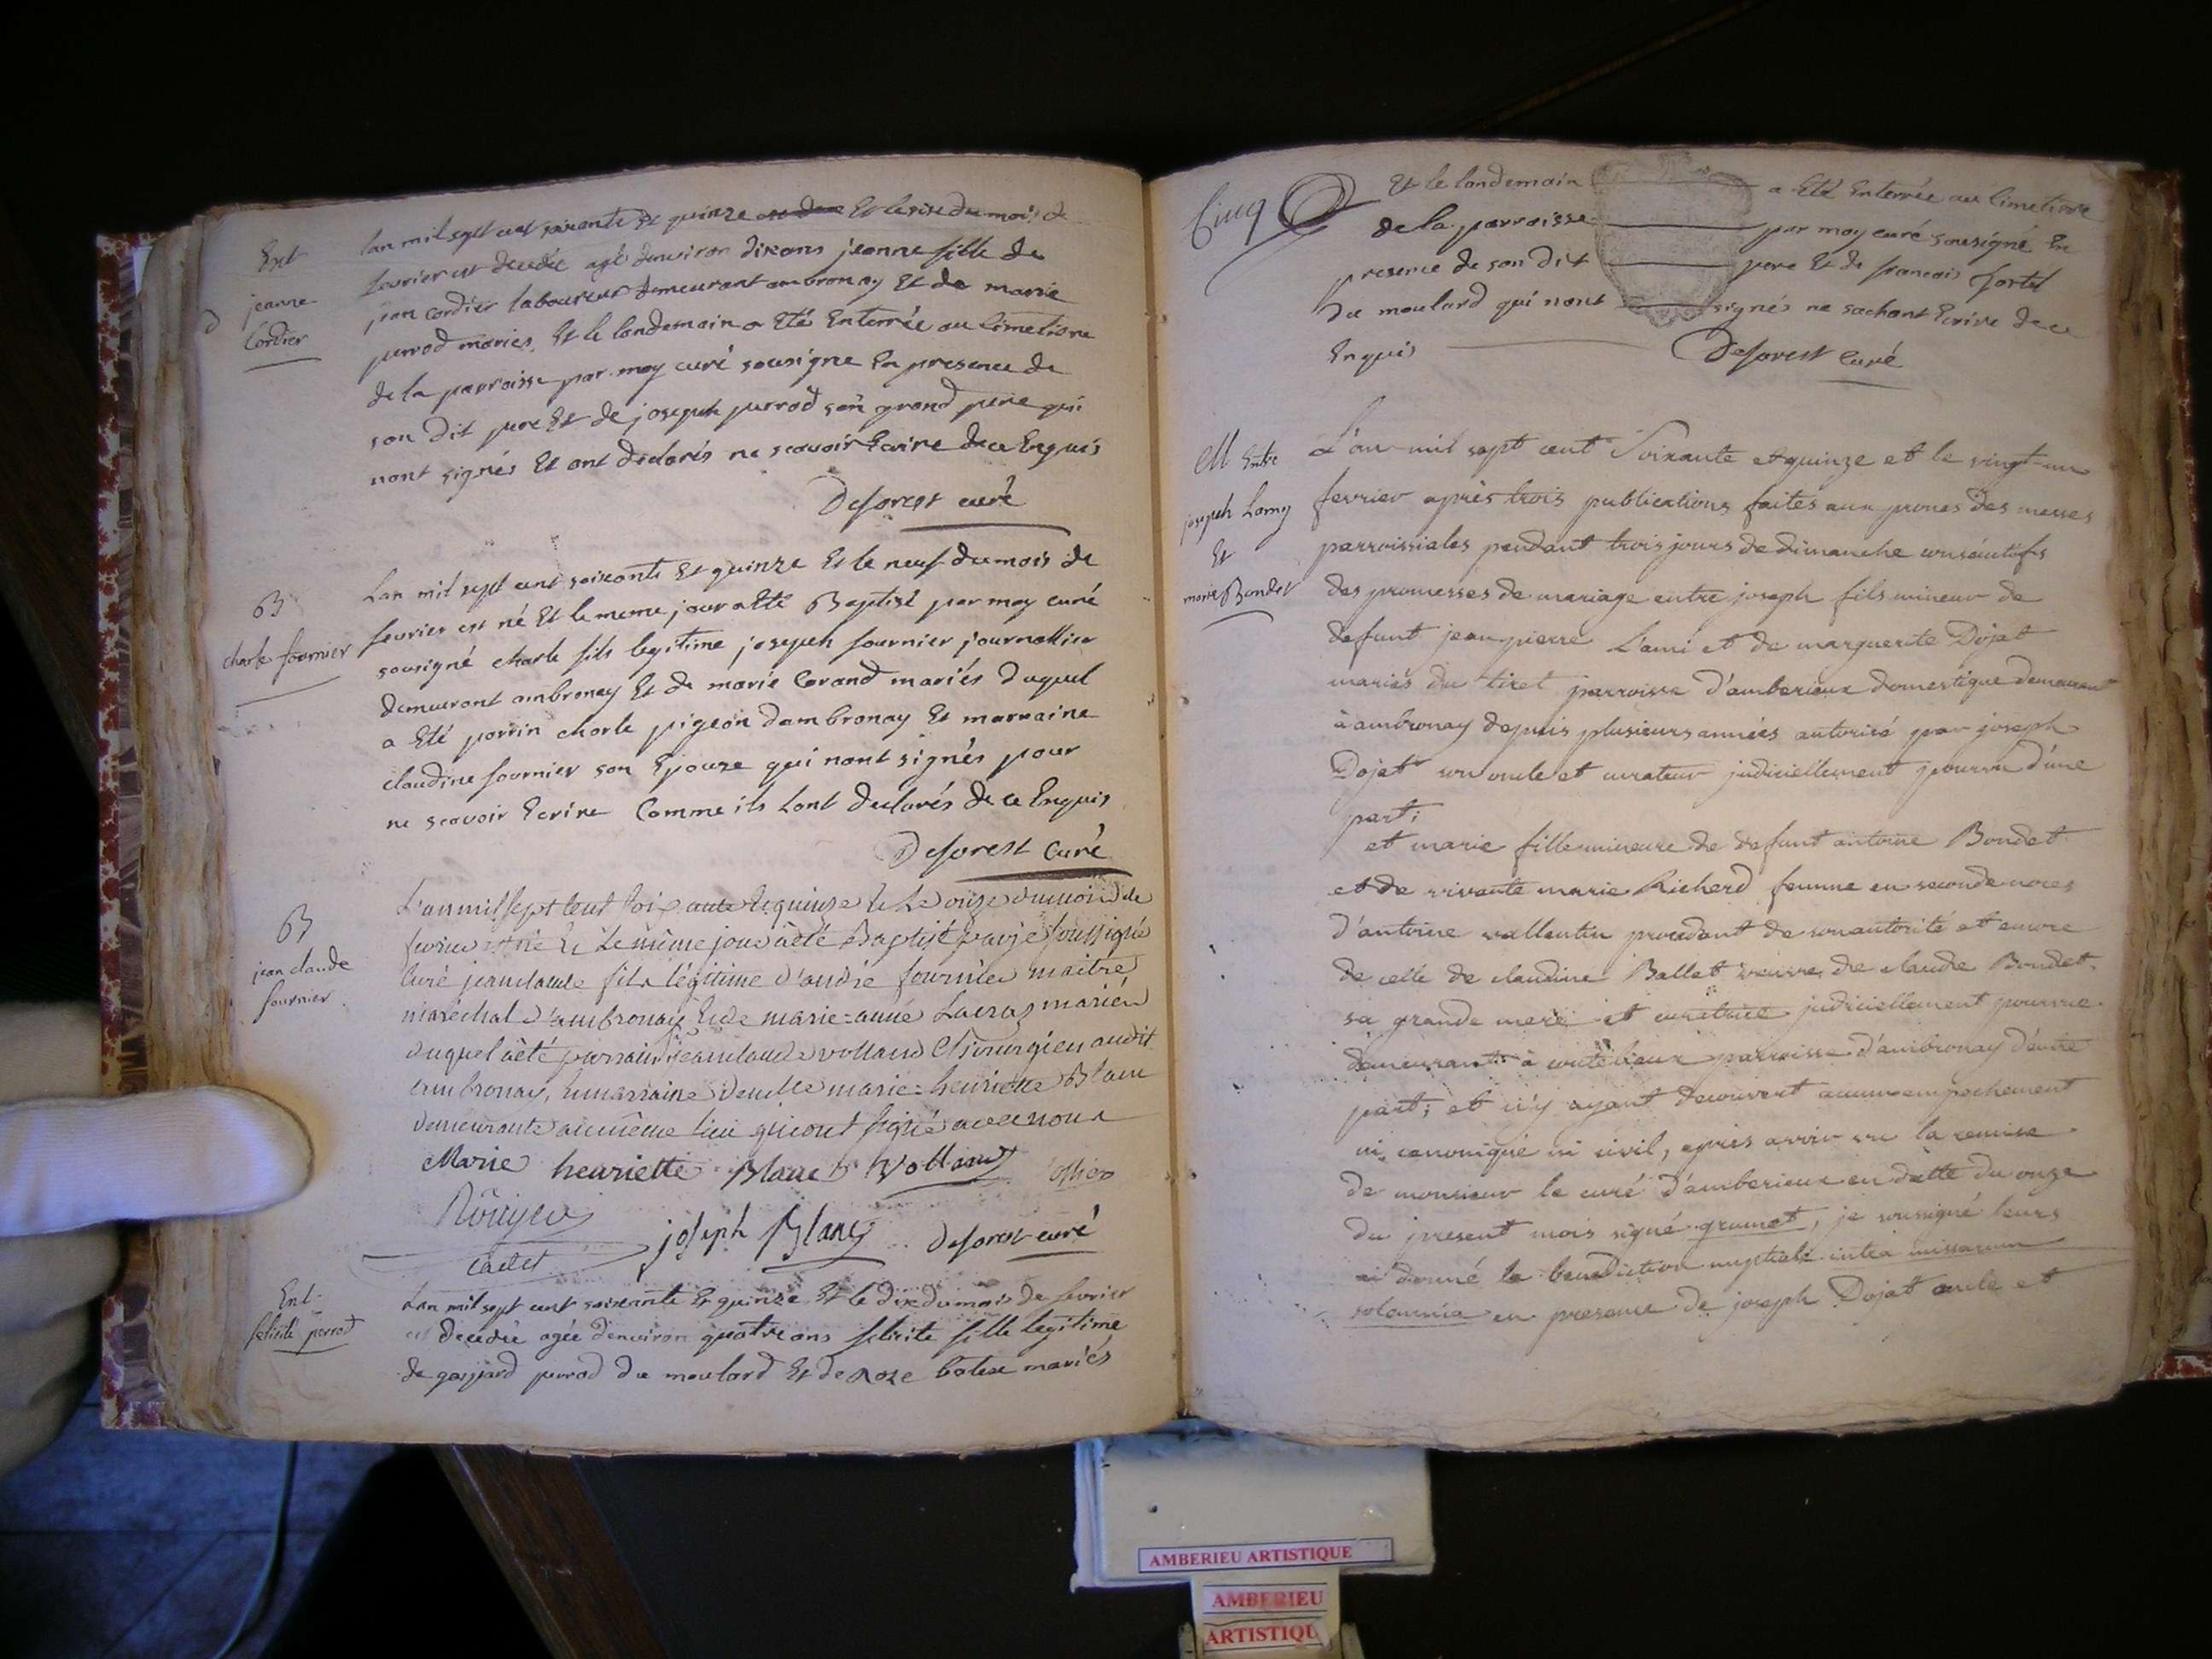 Ent
jeanne
Cordier
lan mil sept cent soixante Et quinze Et le six du mois de
fevrier est decedée agé denviron dix ans jeanne fille de
jean Cordier laboureur demeurant ambronay Et de marie
perrod mariés. Et le landemain a Eté Enterrée au Cimetiere
de la parroisse par moy curé sousigne En presence de
son dit pere Et de joseph perrod son grand pere qui
nont signés Et ont declarés ne scavoir Ecrire de ce Enquis
Deforest curé
B
charle fournier
Lan mil sept cent soixante Et quinze Et le neuf du mois de
fevrier est né Et le meme jour a Eté Baptisé par moy curé
sousigné charle fils legitime joseph fournier journallier
demeurant ambronay Et de marie Corand mariés duquel
a Eté parrin charle pigeon dambronay Et marraine
claudine fournier son Epouze qui nont signés pour
ne scavoir Ecrire Comme ils lont declarés de ce Enquis
Deforest Curé
B
jean claude
fournier
L'an mil sept cent soixante et quinze et le onze du mois de
fevrier est né et le même jour à été Baptisé par je soussigné
curé jean claude fils légitime d'andré fournier maitre
maréchal d'ambronay et de marie-anne Lacras mariés
duquel à été parrain jean claude volland chirurgien audit
ambronay, et marraine demlle marie-henriette Blanc
demeurante au même lieu qui ont signé avec nous
Marie henriette Blanc Volland
Rougeu
cadet
joseph Blanc
Deforest curé
Ent.
felicité perrod
Lan mil sept cent soixante Et quinze Et le dix du mois de fevrier
est decedée agée denviron quatre ans felicite fille legitime
de gaspard perrod du moulard Et de Roze mariés
Cinq
Et le landemain a Eté Enterrée au Cimetiere
de la parroisse par moy curé sousigné En
presence de son dit pere Et de francois fortel
du moulard qui nont signés ne sachant Ecrire de ce
Enquis Deforest Curé
M Entre
joseph Lamy
Et
marie Bondet
L'an mil sept cent Soixante et quinze et le vingt-un
fevrier après trois publications faites aux prones des messes
parroissiales pendant trois jours de dimanche consécutifs
des promesses de mariage entre joseph fils mineur de
defunt jean pierre Lami et de marguerite Dojat
mariés du tiret parroisse d'amberieux domestique demeurant
à ambronay depuis plusieurs années autorisé par joseph
Dojat son oncle et curateur judiciellement pourvu d'une
part;
et marie fille mineure de defunt antoine Bondet
et de vivante marie Richerd femme en seconde noces
d'antoine vallentin procedant de son autorité et encore
de celle de claudine Ballet veuve de claude Bondet
sa grande mere et curatrice judiciellement pourvue
demeurants à parroisse d'ambronay d'autre
part; et n'y ayant decouvert aucun empechement
ni canonique ni civil, après avoir vu la remise
de monsieur le curé d'amberieux en datte du onze
du present mois signé grumet, je sousigné leurs
ai donné la benediction nuptiale intra missarum
solemnia en presence de joseph Dojat oncle et
AMBERIEU ARTISTIQUE
AMBERIEU
ARTISTIQU